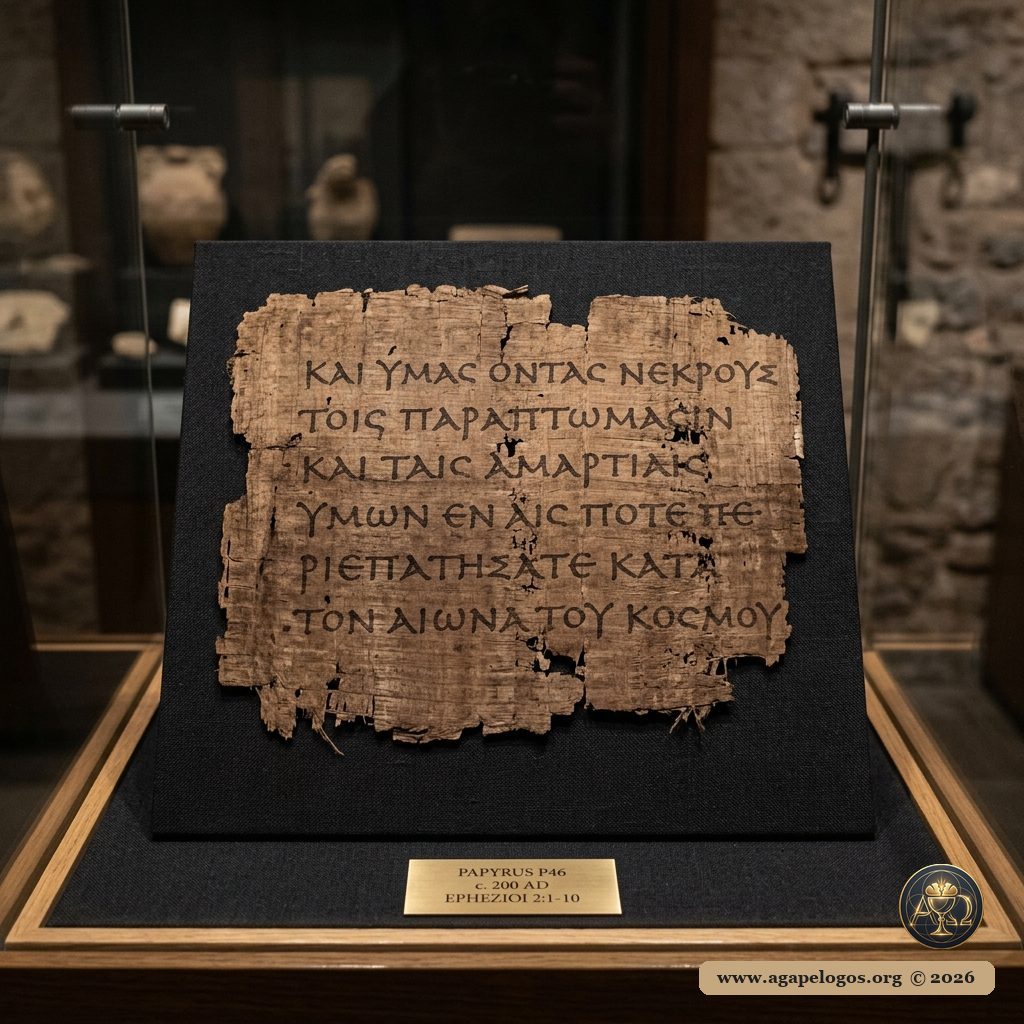 ΚΑΙ ΥΜΑϹ ΟΝΤΑϹ ΝΕΚΡΟΥΣ
ΤΟΙϹ ΠΑΡΑΠΤΩΜΑϹΙΝ
ΚΑΙ ΤΑΙϹ ΑΜΑΡΤΙΑΙϹ
ΥΜΩΝ ΕΝ ΑΙϹ ΠΟΤΕ ΠΕ
ΡΙΕΠΑΤΗΣΑΤΕ ΚΑΤΑ
ΤΟΝ ΑΙΩΝΑ ΤΟΥ ΚΟϹΜΟΥ
PAPYRUS P46
c. 200 AD
EPHEZIOI 2:1-10
ΑΩ
www.agapelogos.org © 2026